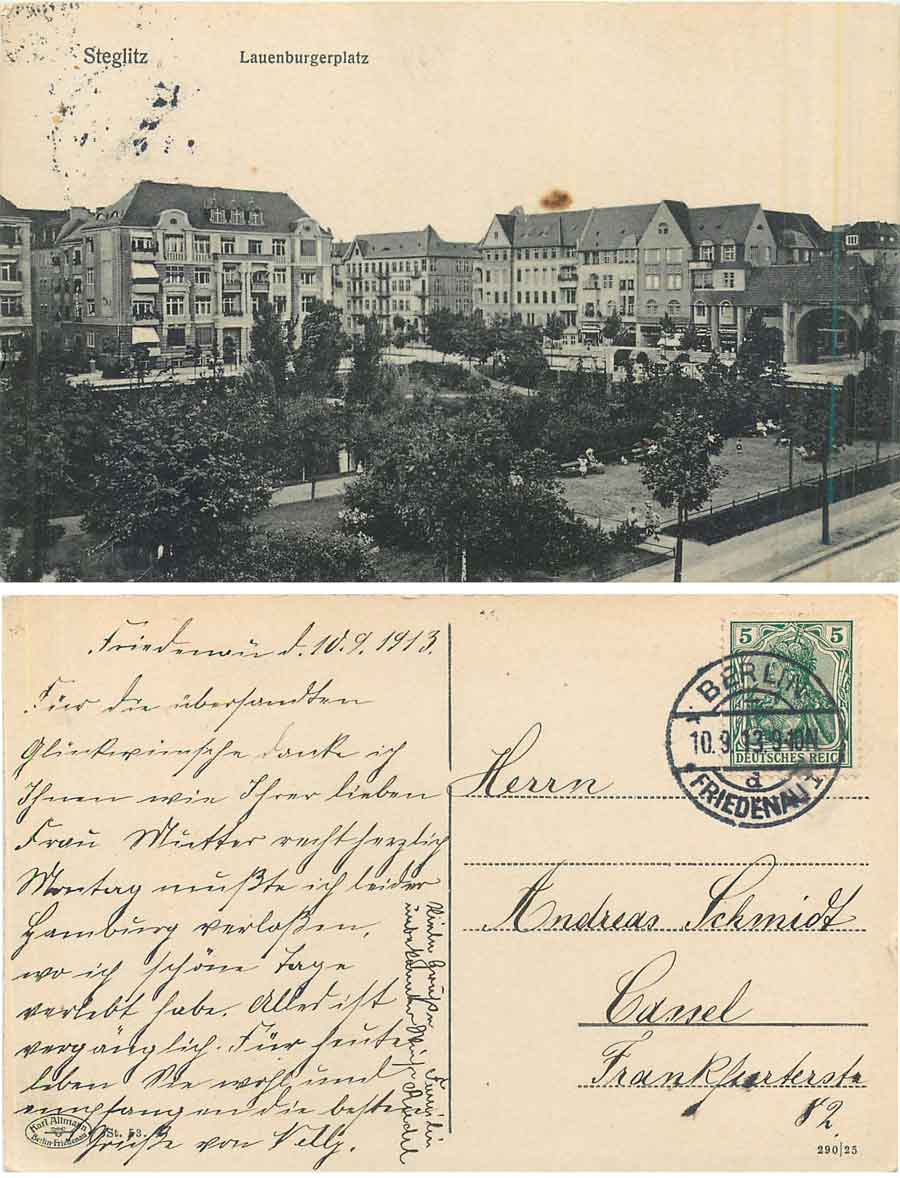 Steglitz Lauenburgerplatz
Friedenau d. 10.9.1913.
Für die übersandten
Glückwünsche danke ich
Ihnen wie Ihrer lieben
Frau Mutter recht herzlich
Montag mußte ich leider
Hamburg verlaßen,
wo ich schöne Tage
verlebt habe. Alles ist
vergänglich. Für heute
leben Sie wohl und
empfangen die besten
Grüße von Nelly.
Viele Grüße
unbekannter Weise
5 5
DEUTSCHES REICH
BERLIN
10.9.13.9-10N
a
* FRIEDENAU 1 *
Herrn
Andreas Schmidt
Cassel
Frankfurterstr
82
Karl Altmann
Berlin-Friedenau
St. 53.
290/25